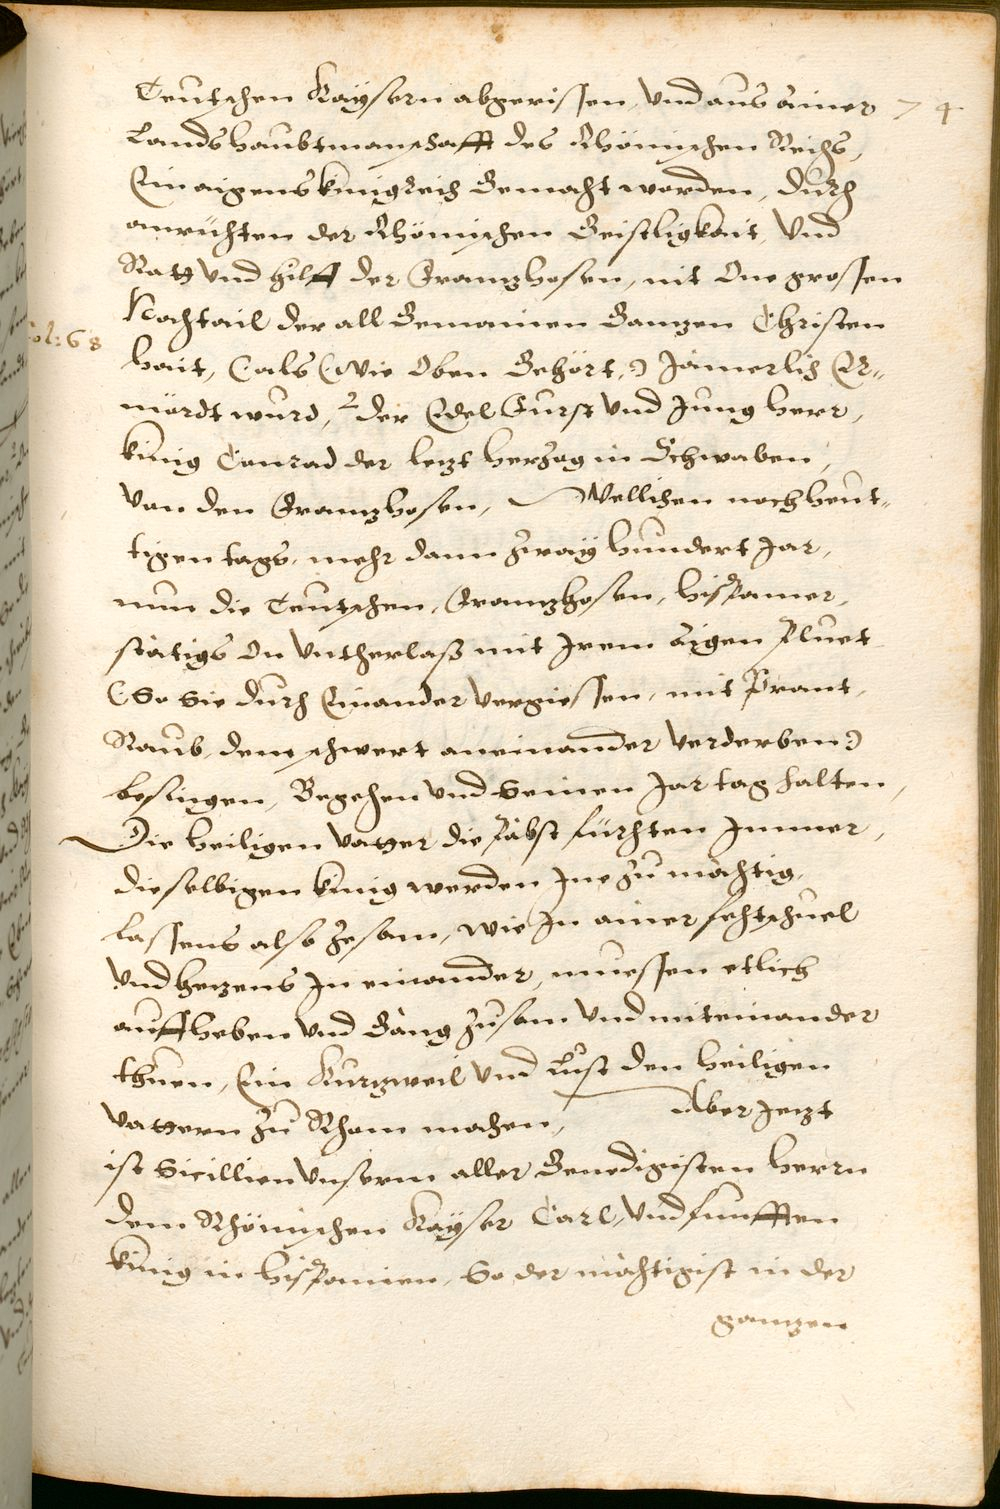 Teutschen Kaysern abgerissen, Vnd aus ainer 74
Landshaubtmanschafft des Rhömischen Reichs,
Ein aigens kunigreich Gemacht worden, durch
anrichten der Rhömischen Geistligkait, Vnd
Rath Vnd hilff der Frantzhosen, nit One grossen
Nachtail der all Gemainen Gantzen Christen
fol: 68
hait, (als (wie Oben Gehört,) Jämerlich Er-
mördt wurd, der Edel Furst Vnd Jung herr,
kunig Conrad der letzt hertzog in Schwaben,
Von den Frantzhosen, Wellichen noch heut-
tigen tags, mehr dann zway hundert Jar,
nun die Teutschen, Frantzhosen, hispanier,
stätigs On Vntherlaß mit Jrem aigen Pluet
(So Sie durch Einander Vergiessen, mit Prant,
Raub, dem schwert aneinander Verderben)
besingen, Begehen Vnd Seinen Jar tag halten,
Die heiligen Vatter die Päbst fürchten Jmmer,
dieselbigen kunig werden Jne zu mächtig,
lassens also zesam, wie Jn ainer fechtschuel
Vnd hetzens Jn einander, muessen etlich
auffheben Vnd Gäng zusam Vnd miteinander
thuen, Ein Kurtzweil Vnd Lust den heiligen
Vattern zu Rhom machen, Aber Jetzt
ist Sicillien Vnserm aller Genedigisten herrn
dem Rhömischen Kayser Carl, Vnd funfften
kunig in hispanien, So der mächtigist in der
gantzen